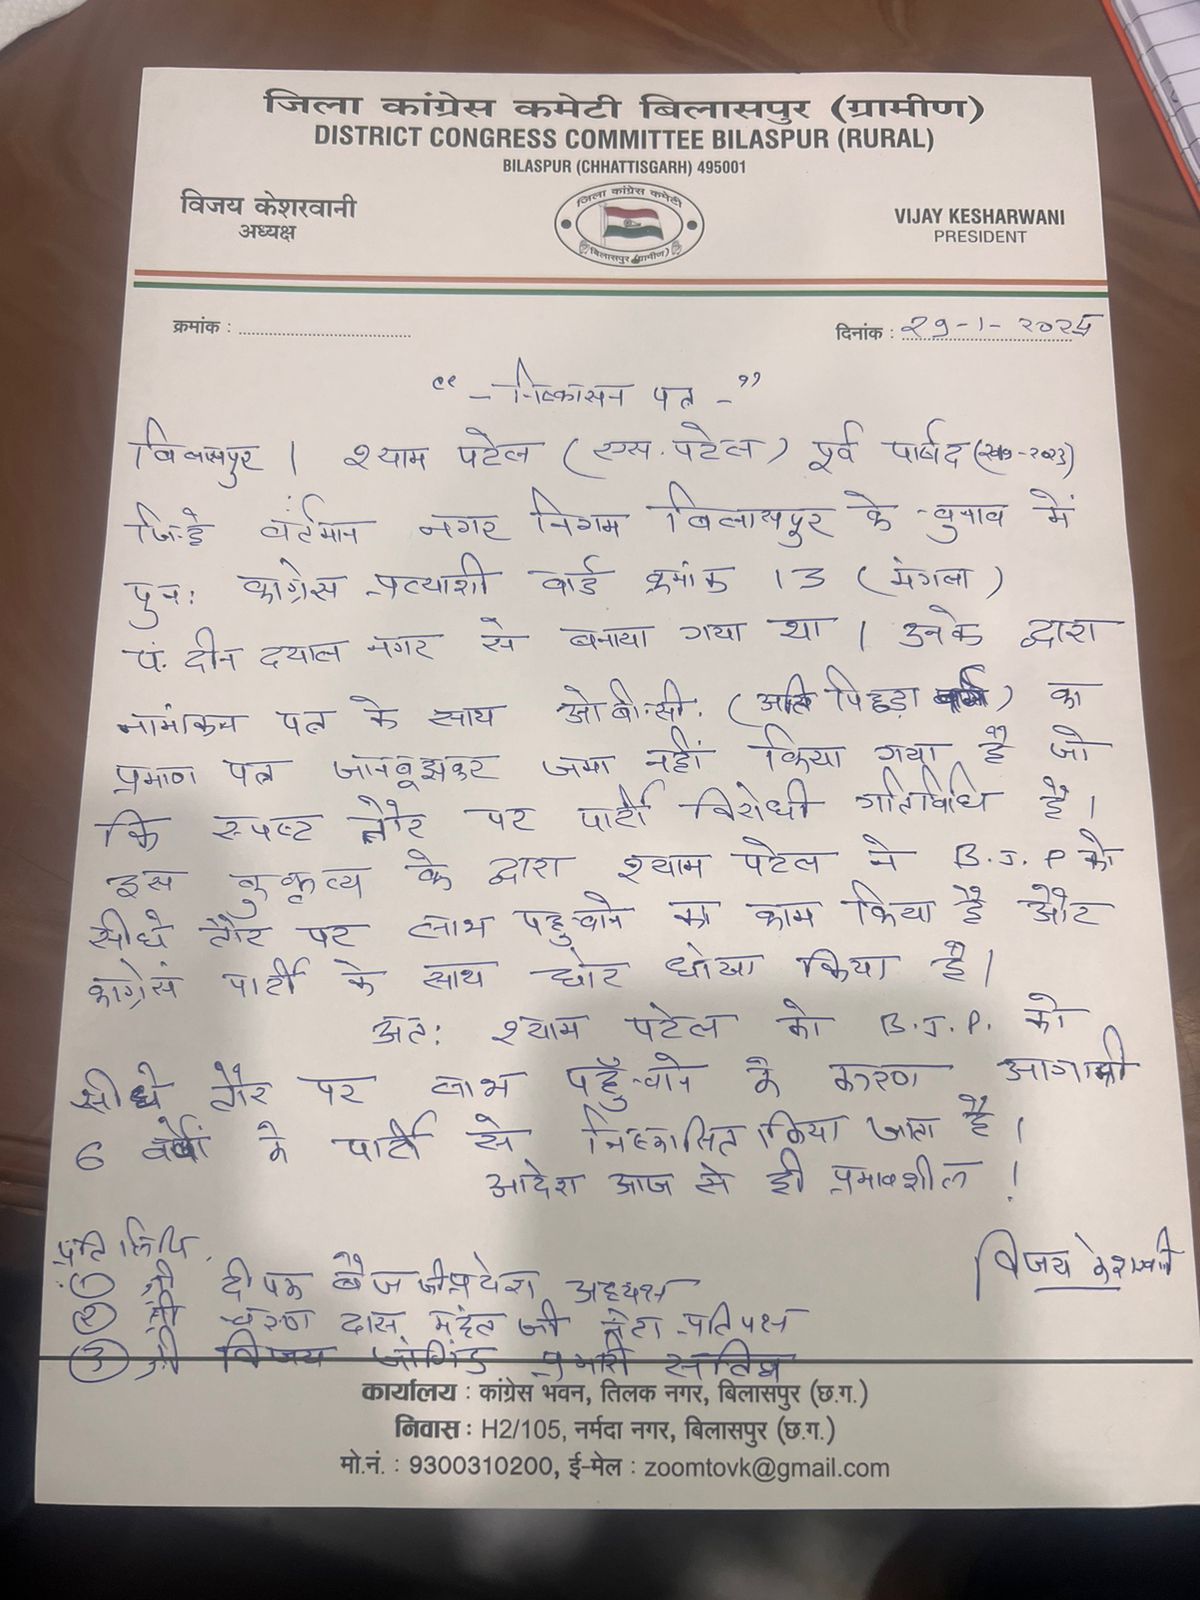 जिला कांग्रेस कमेटी बिलासपुर (ग्रामीण)
DISTRICT CONGRESS COMMITTEE BILASPUR (RURAL)
BILASPUR (CHHATTISGARH) 495001
विजय केशरवानी
अध्यक्ष
जिला कांग्रेस कमेटी
बिलासपुर (ग्रामीण)
VIJAY KESHARWANI
PRESIDENT
क्रमांक :
दिनांक : २९-१-२०२५
“ - निष्कासन पत्र - ”
बिलासपुर । श्याम पटेल (एस. पटेल) पूर्व पार्षद
जिन्हे वर्तमान नगर निगम बिलासपुर के चुनाव में
पुनः कांग्रेस प्रत्याशी वार्ड क्रमांक 13 (मंगला)
पं. दीन दयाल नगर से बनाया गया था । उनके द्वारा
नामांकन पत्र के साथ ओ.बी.सी. (अति पिछड़ा वर्ग) का
प्रमाण पत्र जानबूझकर जमा नहीं किया गया है जो
कि स्पष्ट तौर पर पार्टी विरोधी गतिविधि है ।
इस कुकृत्य के द्वारा श्याम पटेल ने B.J.P को
सीधे तौर पर लाभ पहुचाने का काम किया है और
कांग्रेस पार्टी के साथ घोर धोखा किया है ।
अतः श्याम पटेल को B.J.P. को
सीधे तौर पर लाभ पहुँचाने के कारण आगामी
6 वर्षों के पार्टी से निष्कासित किया जाता है ।
आदेश आज से ही प्रभावशील !
प्रति लिपि.
(1) श्री दीपक बैज जी प्रदेश अध्यक्ष
(2) श्री चरण दास महंत जी नेता प्रतिपक्ष
(3) श्री विजय जांगिड प्रभारी सचिव
विजय केशरवानी
कार्यालय : कांग्रेस भवन, तिलक नगर, बिलासपुर (छ.ग.)
निवास : H2/105, नर्मदा नगर, बिलासपुर (छ.ग.)
मो.नं. : 9300310200, ई-मेल : zoomtovk@gmail.com